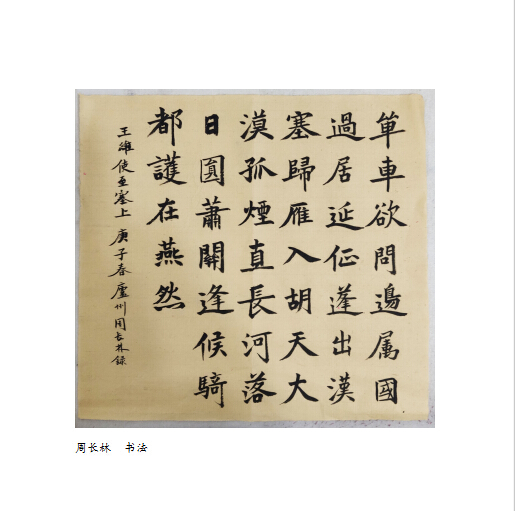 单車欲問邊属國
過居延征蓬出漢
塞歸雁入胡天大
漠孤煙直長河落
日圓蕭關逢候騎
都護在燕然
王維使至塞上 庚子春廬州周长林録
周长林 书法